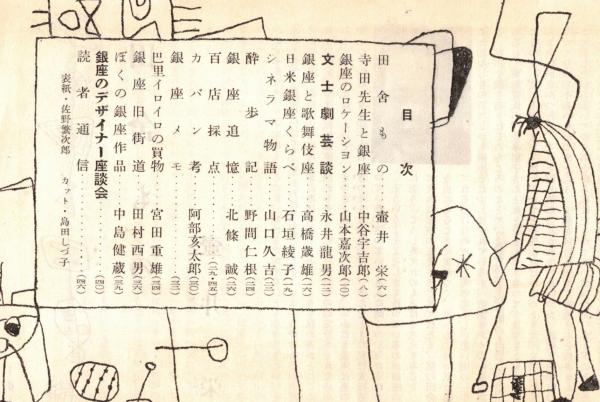 目次
田舎もの……壷井栄(六)
寺田先生と銀座……中谷宇吉郎(八)
銀座のロケーション……山本嘉次郎(一〇)
文士劇芸談……永井龍男(一三)
銀座と歌舞伎座……高橋歳雄(一六)
日米銀座くらべ……石垣綾子(一九)
シネラマ物語……山口久吉(二二)
酔歩記……野間仁根(二四)
銀座追憶……北條誠(二六)
百店採点……(二九・四五)
カバン考……阿部亥太郎(三〇)
銀座メモ……(三三)
巴里イロイロの買物……宮田重雄(三四)
銀座旧街道……田村西男(三六)
ぼくの銀座作品……中島健蔵(三九)
銀座のデザイナー座談会……(四〇)
読者通信……(四六)
表紙・佐野繁次郎 カット・島田しづ子